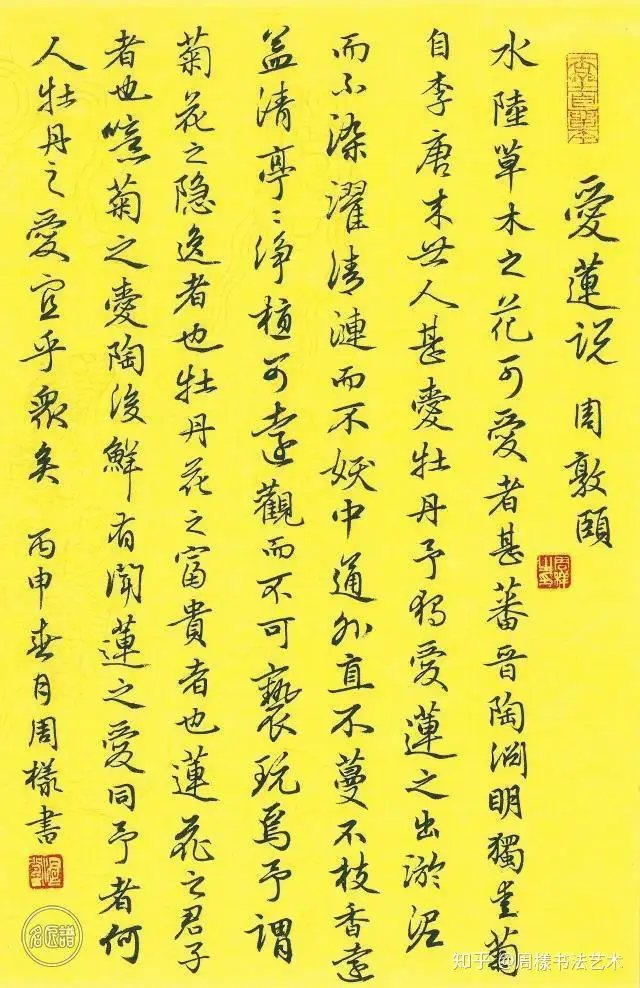 愛蓮说 周敦頤
水陸草木之花可愛者甚蕃晋陶渊明獨愛菊
自李唐末世人甚愛牡丹予独愛蓮之出淤泥
而不染濯清漣而不妖中通外直不蔓不枝香遠
益清亭〻净植可遠觀而不可褻玩焉予謂
菊花之隐逸者也牡丹花之富貴者也蓮花之君子
者也噫菊之愛陶後鮮有闻蓮之愛同予者何
人牡丹之愛宜乎眾矣 丙申春月周樣書
名匠譜
知乎 @周樣书法艺术